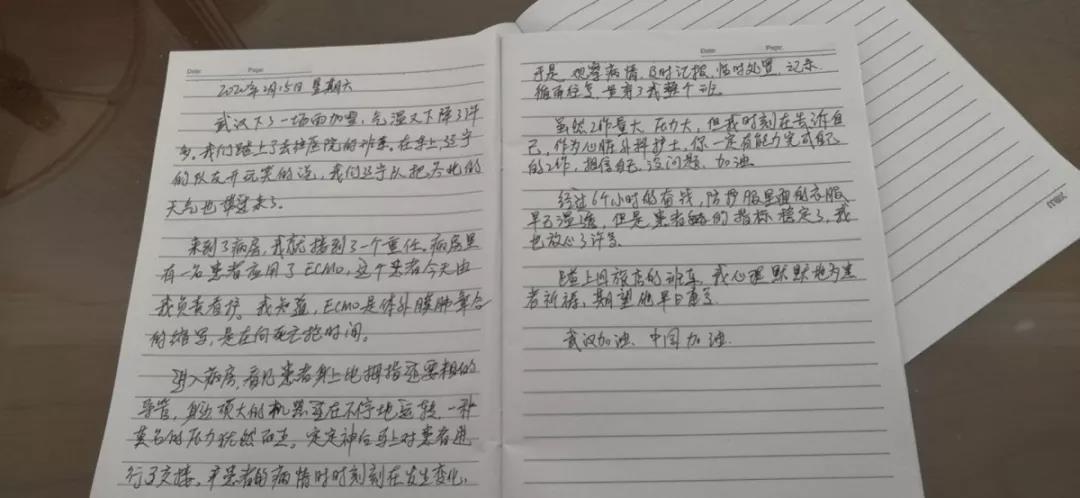 Date: Page:
2020年2月15日 星期六
武汉下了一场雨加雪,气温又下降了许
多。我们踏上了去往医院的班车,在车上,辽宁
的队友开玩笑的说,我们辽宁队把东北的
天气也带来了。
来到了病房,我就接到了一个重任。病房里
有一名患者应用了ECMO,这个患者今天由
我负责看护。我知道,ECMO是体外膜肺氧合
的缩写,是在向死亡抢时间。
进入病房,看见患者身上比拇指还要粗的
导管,身边硕大的机器还在不停地运转,一种
莫名的压力油然而生。定定神后马上对患者进
行了交接。患者的病情时时刻刻在发生变化,
Date: Page:
于是,观察病情,及时汇报,临时处置,记录
循而往复,贯穿了我整个班。
虽然工作量大,压力大,但我时刻在告诉自
己,作为心脏外科护士,你一定有能力完成自己
的工作,相信自己,没问题,加油。
经过6个小时的奋战,防护服里面的衣服
早已湿透,但是患者的指标稳定了,我
也放心了许多。
踏上回旅店的班车,我心理默默地为患
者祈祷,期望他早日康复。
武汉加油,中国加油。